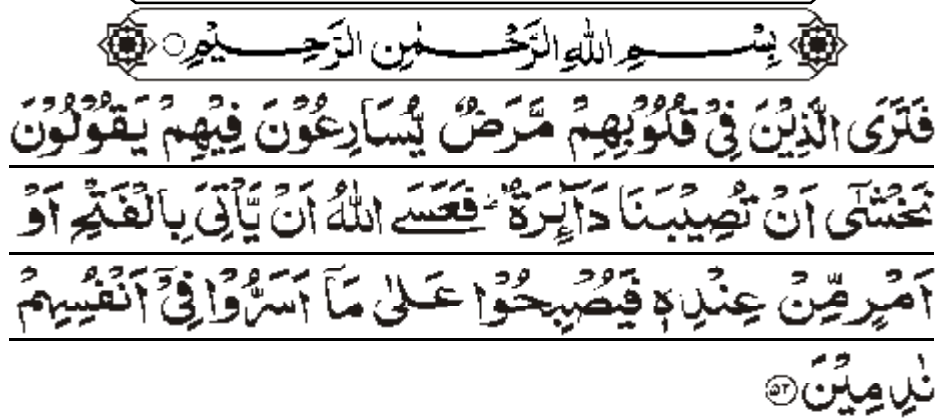 بِسْمِ اللهِ الرَّحْمٰنِ الرَّحِيْمِ ○
فَتَرَى الَّذِيْنَ فِىْ قُلُوْبِهِمْ مَّرَضٌ يُّسَارِعُوْنَ فِيْهِمْ يَقُوْلُوْنَ
نَخْشٰٓى اَنْ تُصِيْبَنَا دَآئِرَةٌ ؕ فَعَسَے اللهُ اَنْ يَّاْتِىَ بِالْفَتْحِ اَوْ
اَمْرٍ مِّنْ عِنْدِهٖ فَيُصْبِحُوْا عَلٰى مَاۤ اَسَرُّوْا فِىْۤ اَنْفُسِهِمْ
نٰدِمِيْنَ ﴿۵۲﴾